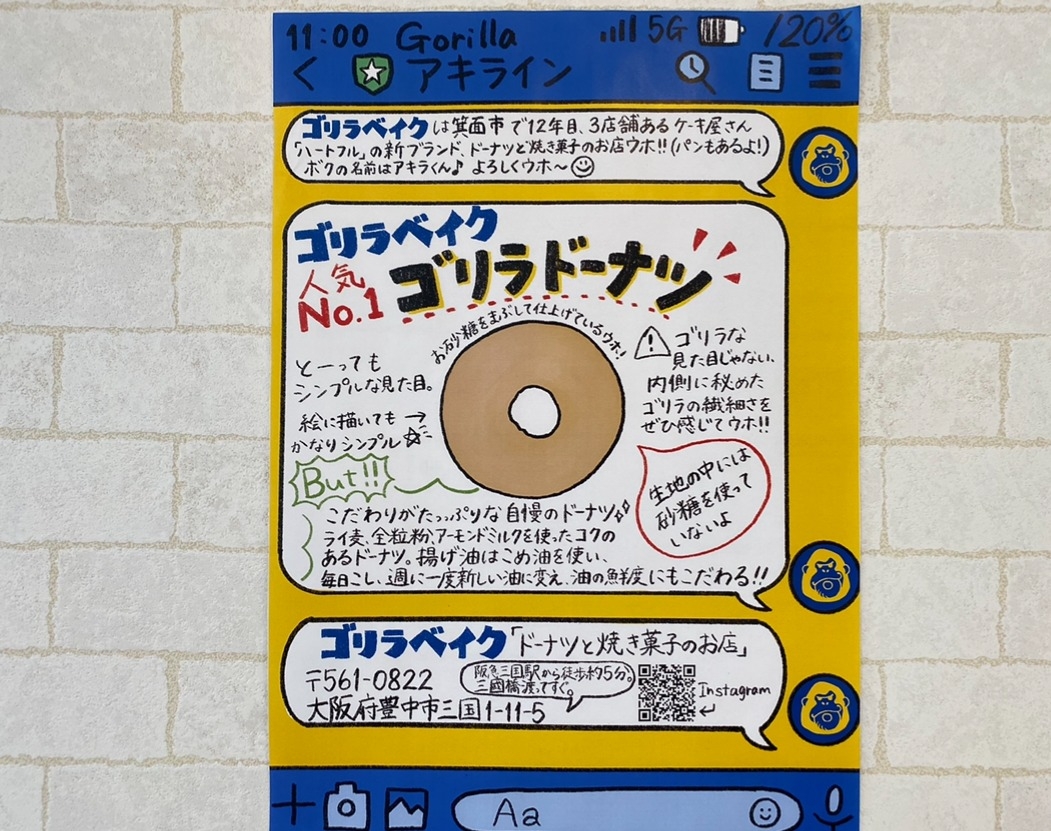 11:00 Gorilla 5G 120%
アキライン
ゴリラベイクは箕面市で12年目、3店舗あるケーキ屋さん
「ハートフル」の新ブランド、ドーナツと焼き菓子のお店ウホ!!(パンもあるよ!)
ボクの名前はアキラくん♪ よろしくウホ〜☺
ゴリラベイク
人気
No.1
ゴリラドーナツ
お砂糖をまぶして仕上げているウホ!
とーっても
シンプルな見た目。
絵に描いても→
かなりシンプル☆
⚠ゴリラな
見た目じゃない、
内側に秘めた
ゴリラの繊細さを
ぜひ感じてウホ!!
But!!
生地の中には
砂糖を使って
いないよ
こだわりがたっっぷりな自慢のドーナツ
ライ麦、全粒粉、アーモンドミルクを使ったコクの
あるドーナツ。揚げ油はこめ油を使い、
毎日こし、週に一度新しい油に変え、油の鮮度にもこだわる!!
ゴリラベイク「ドーナツと焼き菓子のお店」
〒561-0822
大阪府豊中市三国1-11-5
阪急三国駅から徒歩約5分。
三國橋渡ってすぐ。
Instagram
Aa